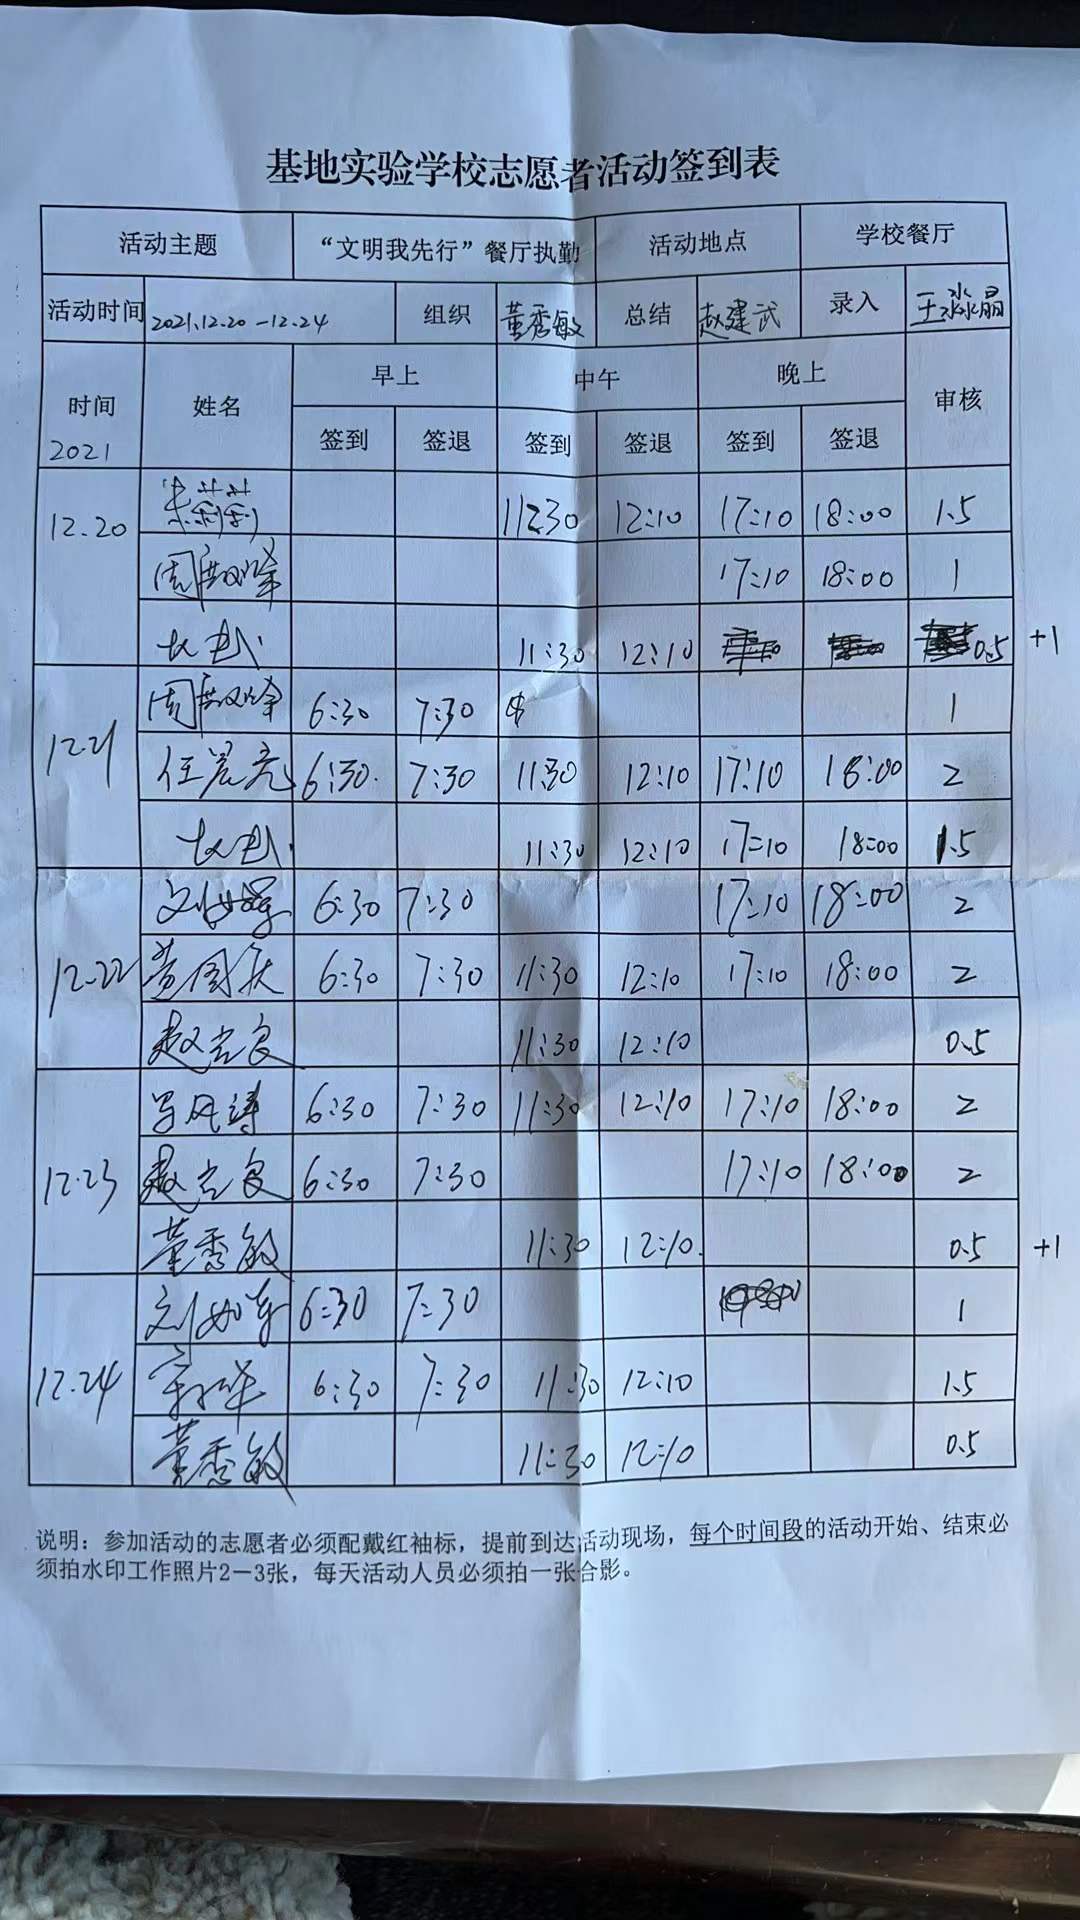 基地实验学校志愿者活动签到表
活动主题 “文明我先行”餐厅执勤 活动地点 学校餐厅
活动时间 2021.12.20-12.24 组织 董秀敏 总结 赵建武 录入 王冰晶
时间 2021 姓名 早上 中午 晚上 审核
签到 签退 签到 签退 签到 签退
12.20 朱莉莉 11:30 12:10 17:10 18:00 1.5
17:10 18:00 1
11:30 12:10 0.5 +1
12.21 6:30 7:30 1
任晨亮 6:30 7:30 11:30 12:10 17:10 18:00 2
11:30 12:10 17:10 18:00 1.5
12.22 6:30 7:30 17:10 18:00 2
黄国庆 6:30 7:30 11:30 12:10 17:10 18:00 2
11:30 12:10 0.5
12.23 6:30 7:30 11:30 12:10 17:10 18:00 2
6:30 7:30 17:10 18:00 2
董秀敏 11:30 12:10 0.5 +1
12.24 6:30 7:30 1
6:30 7:30 11:30 12:10 1.5
董秀敏 11:30 12:10 0.5
说明：参加活动的志愿者必须配戴红袖标，提前到达活动现场，每个时间段的活动开始、结束必
须拍水印工作照片2-3张，每天活动人员必须拍一张合影。